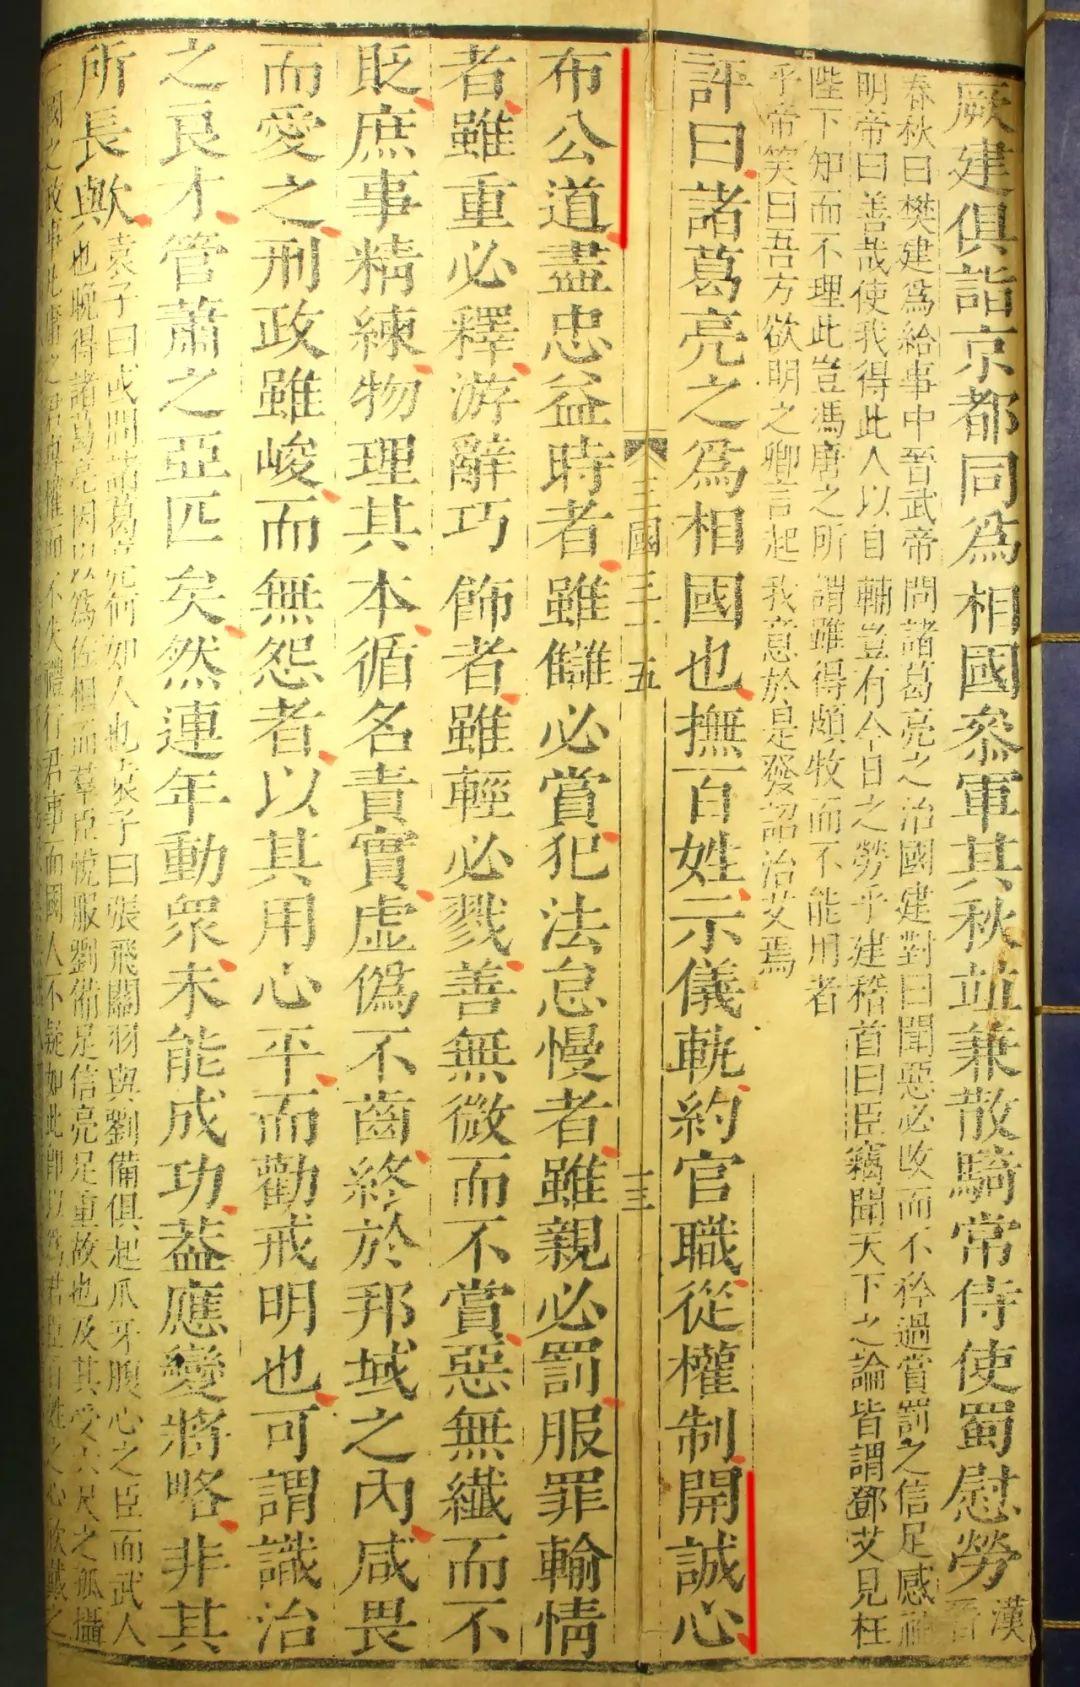 厥建俱詣京都同爲相國參軍其秋並兼散騎常侍使蜀慰勞漢晉
春秋曰樊建爲給事中晉武帝問諸葛亮之治國建對曰聞惡必改而不矜過賞罰之信足感神
明帝曰善哉使我得此人以自輔豈有今日之勞乎建稽首曰臣竊聞天下之論皆謂鄧艾見枉
陛下知而不理此豈馮唐之所謂雖得頗牧而不能用者
乎帝笑曰吾方欲明之卿言起我意於是發詔治艾焉
評曰諸葛亮之爲相國也撫百姓示儀軌約官職從權制開誠心
三國三十五
十三
布公道盡忠益時者雖讎必賞犯法怠慢者雖親必罰服罪輸情
者雖重必釋游辭巧飾者雖輕必戮善無微而不賞惡無纖而不
貶庶事精練物理其本循名責實虛僞不齒終於邦域之內咸畏
而愛之刑政雖峻而無怨者以其用心平而勸戒明也可謂識治
之良才管蕭之亞匹矣然連年動衆未能成功蓋應變將略非其
所長歟
袁子曰或問諸葛亮何如人也袁子曰張飛關羽與劉備俱起爪牙腹心之臣而武人
也晚得諸葛亮因以爲佐相而羣臣悅服劉備足信亮足重故也及其受六尺之孤攝
一國之政事凡庸之君專權而不失禮行君事而國人不疑如此即以爲君臣百姓之心欣戴之